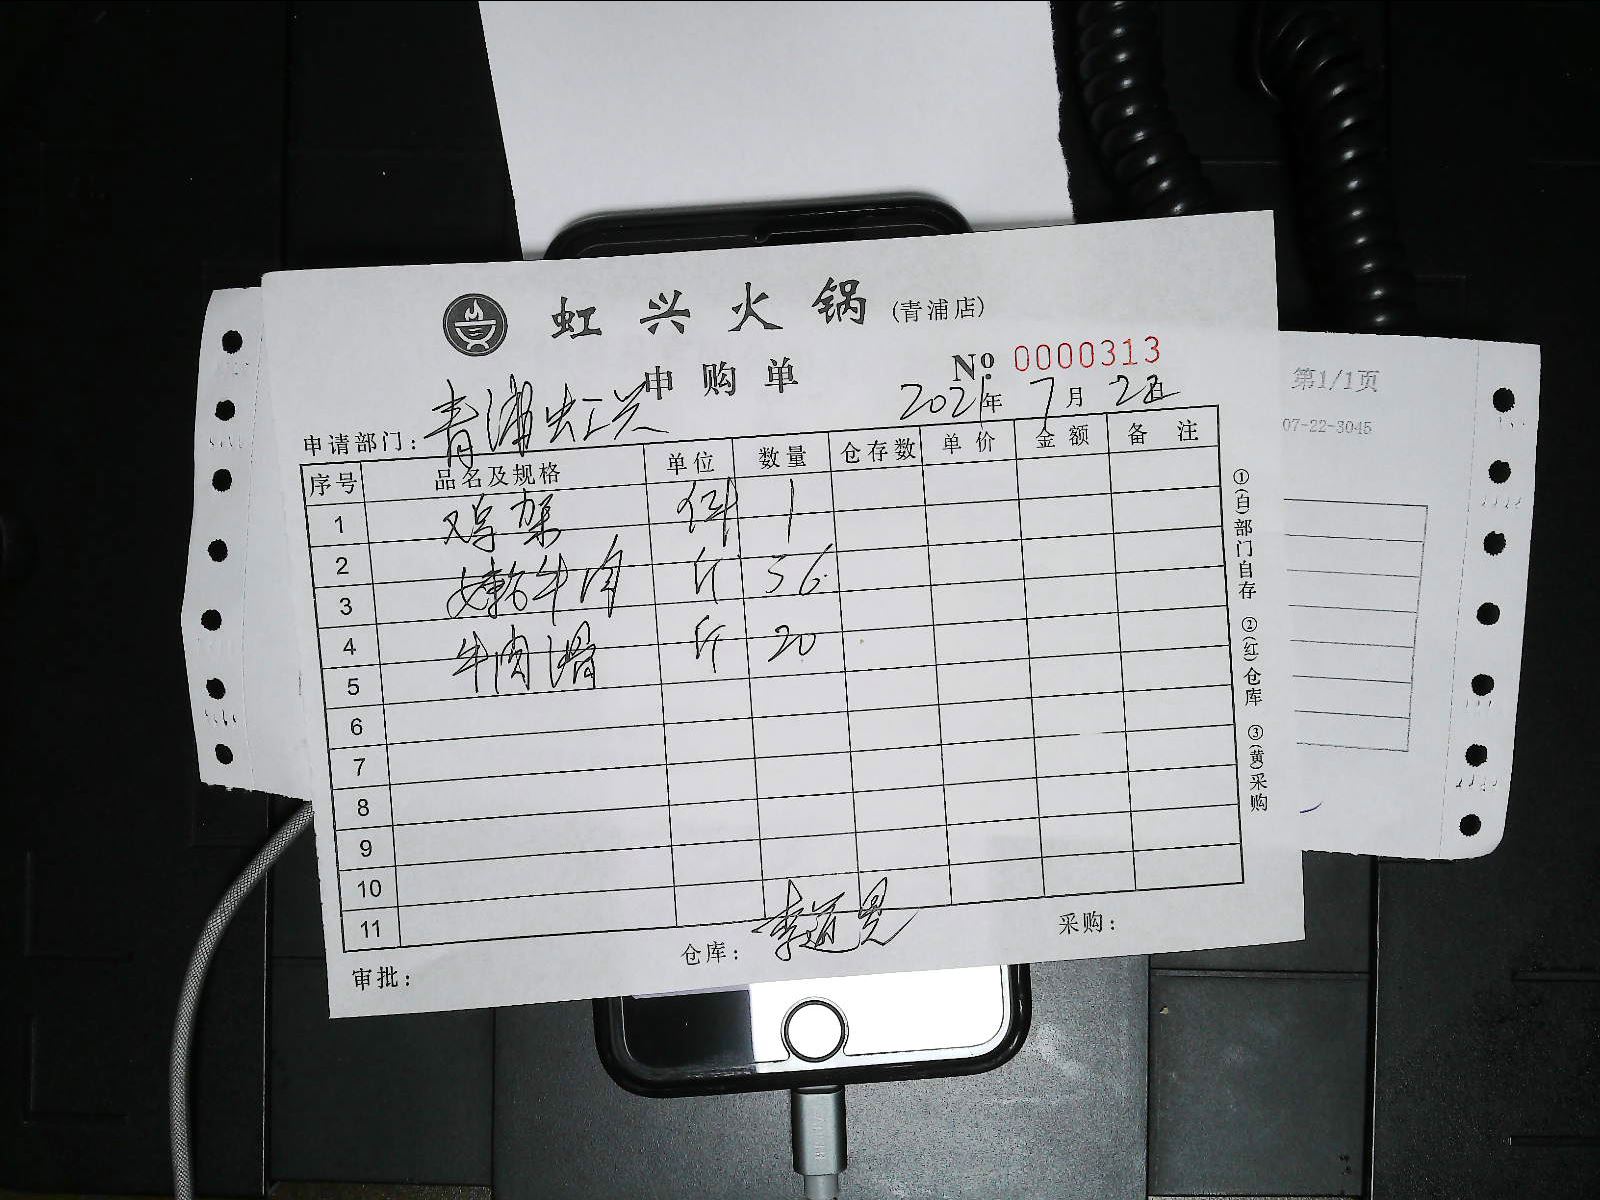 虹兴火锅(青浦店)
申购单 № 0000313
申请部门: 青浦虹兴 2021年7月2日
序号 品名及规格 单位 数量 仓存数 单价 金额 备注
1 鸡架 件 1
2
3 嫩牛肉 斤 56
4 牛肉滑 斤 20
5
6
7
8
9
10
11
审批: 仓库: 采购:
①(白)部门自存 ②(红)仓库 ③(黄)采购
第1/1页
07-22-3045